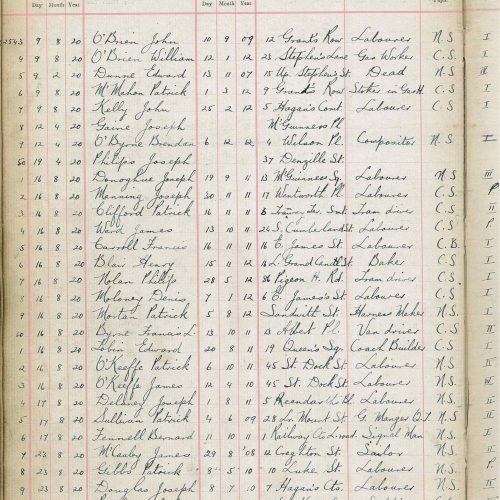 Day Month Year Day Month Year
2543 9 8 20 O'Brien John 10 9 09 12 Grant's Row Labourer N.S. I
4 9 8 20 O'Brien William 12 1 12 23 Stephen's Lane Gas Worker C.S. I
5 9 2 20 Dunne Edward 13 11 07 15 Up. Stephen's St. Dead N.S.
6 9 8 20 McMahon Patrick 1 3 12 9 Grant's Row Stoker in Gas H. C.S. I
7 9 8 20 Kelly John 25 2 12 5 Hagan's Cont. Labourer C.S. I
8 12 4 20 Gavine Joseph McGuinness Pl.
9 12 4 20 O'Byrne Brendan 6 12 12 4 Wilson Pl. Compositor N.S. I
50 19 4 20 Philips Joseph 37 Denzille St.
1 16 8 20 Donoghue Joseph 19 9 11 13 McGuinness Sq. Labourer N.S. III
2 16 8 20 Manning Joseph 30 11 11 17 Wentworth Pl. Labourer C.S. P
3 16 8 20 Clifford Patrick 16 11 11 Tram driver C.S. II
4 16 8 20 Ward James 13 10 11 24 S. Cumberland St. Labourer C.S.
5 16 8 20 Carroll Francis 16 11 11 16 E. James St. Labourer C.B. I
6 16 8 20 Blair Henry 15 11 12 16 L. Grand Canal St. Baker C.S. I
7 16 8 20 Nolan Philip 28 5 12 86 Pigeon H. Rd. Tram driver C.S. I
8 16 8 20 Moloney Denis 7 1 12 6 E. James's St. Labourer C.S. I
9 16 8 20 Mortan Patrick 5 8 12 Sandwith St. Harness Maker N.S. I
60 16 8 20 Byrne Francis L. 13 10 11 13 Albert Pl. Van driver C.S. II
1 16 8 20 Tobin Edward 20 8 11 19 Queen's Sq. Coach Builder C.S. I
2 16 8 20 O'Keeffe Patrick 6 10 11 45 St. Dock St. Labourer N.S. I
3 16 8 20 O'Keeffe James 12 4 10 45 St. Dock St. Labourer N.S. I
4 17 8 20 Delaney Joseph 1 8 11 5 Labourer N.S. II
5 17 8 20 Sullivan Patrick 4 6 09 28 Lr. Mount St. G. Manger N.S. II
6 17 8 20 Fennell Bernard 11 10 11 1 Railway Signal Man N.S. I
7 23 8 20 McCauley James 29 8 08 12 Creighton St. Sailor N.S. I
8 23 8 20 Gibbs Patrick 8 5 10 10 Luke St. Labourer N.S. P
9 23 8 20 Douglas Joseph 8 7 10 7 Hagan's Cts. Labourer N.S. I